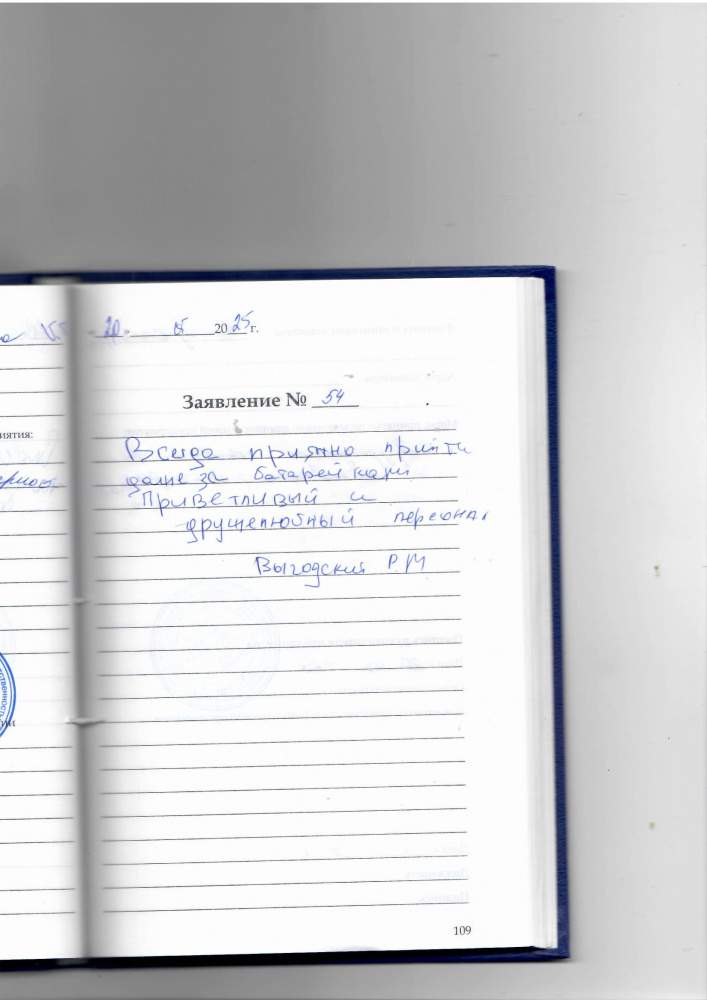 « 20 » 05 2025 г.
Заявление № 54
иятия:
Всегда приятно прийти
даже за батарейками
Приветливый и
дружелюбный персонал
Выгодский Р.М
109